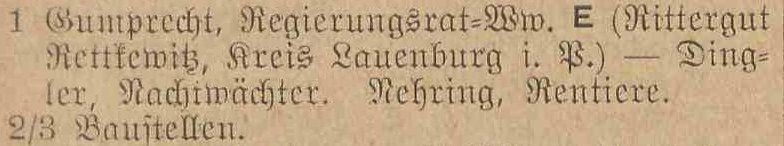 1 Gumprecht, Regierungsrat-Ww. E (Rittergut
Rettkewitz, Kreis Lauenburg i. P.) — Ding-
ler, Nachtwächter. Nehring, Rentiere.
2/3 Baustellen.